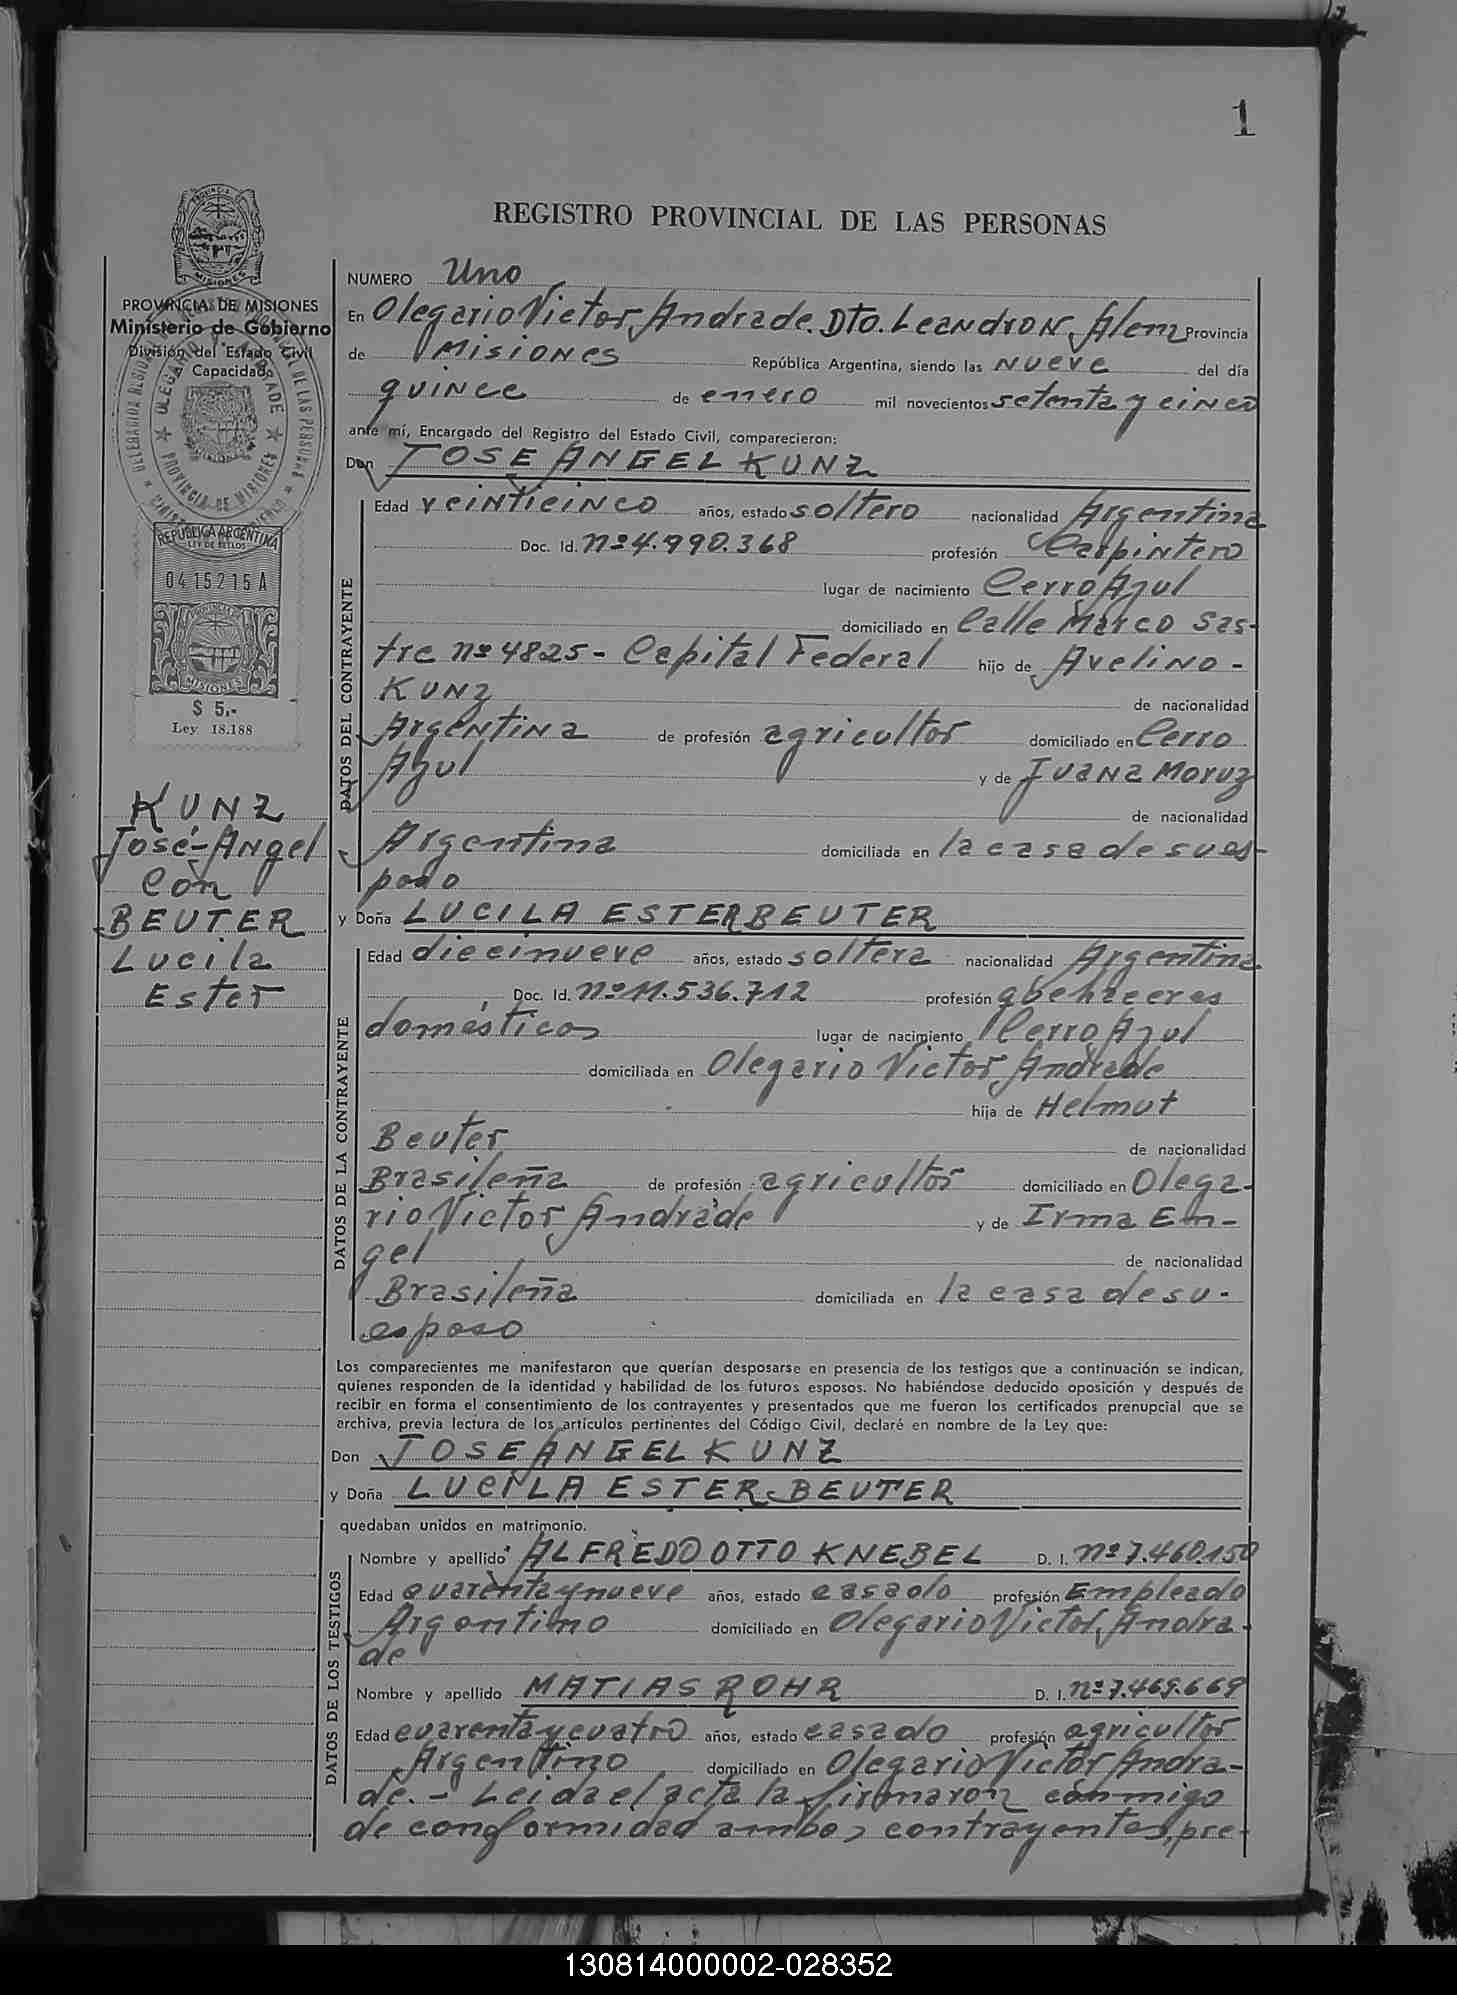 1
REGISTRO PROVINCIAL DE LAS PERSONAS
PROVINCIA DE MISIONES
Ministerio de Gobierno
División del Estado Civil
Capacidad
REPUBLICA ARGENTINA
LEY DE SELLOS
0415215 A
MISIONES
$ 5,-
Ley 18.188
KUNZ
José-Angel
Con
BEUTER
Lucila
Ester
NUMERO Uno
En Olegario Victor Andrade. Dto. Leandro N. Alem Provincia
de Misiones República Argentina, siendo las nueve del día
quince de enero mil novecientos setenta y cinco
ante mí, Encargado del Registro del Estado Civil, comparecieron:
Don JOSE ANGEL KUNZ
DATOS DEL CONTRAYENTE
Edad veinticinco años, estado soltero nacionalidad Argentina
Doc. Id. nº 4.990.368 profesión Carpintero
lugar de nacimiento Cerro Azul
domiciliado en Calle Marco Sas-
tre nº 4825 - Capital Federal hijo de Avelino -
Kunz de nacionalidad
Argentina de profesión agricultor domiciliado en Cerro
Azul y de Juana Moruz
de nacionalidad
Argentina domiciliada en la casa de su es-
poso
y Doña LUCILA ESTER BEUTER
DATOS DE LA CONTRAYENTE
Edad diecinueve años, estado soltera nacionalidad Argentina
Doc. Id. nº 11.536.712 profesión
domésticos lugar de nacimiento Cerro Azul
domiciliada en Olegario Victor Andrade
hija de Helmut
Beuter de nacionalidad
Brasileña de profesión agricultor domiciliado en Olega-
rio Victor Andrade y de Irma En-
gel de nacionalidad
Brasileña domiciliada en la casa de su -
esposo
Los comparecientes me manifestaron que querían desposarse en presencia de los testigos que a continuación se indican,
quienes responden de la identidad y habilidad de los futuros esposos. No habiéndose deducido oposición y después de
recibir en forma el consentimiento de los contrayentes y presentados que me fueron los certificados prenupcial que se
archiva, previa lectura de los artículos pertinentes del Código Civil, declaré en nombre de la Ley que:
Don JOSE ANGEL KUNZ
y Doña LUCILA ESTER BEUTER
quedaban unidos en matrimonio.
DATOS DE LOS TESTIGOS
Nombre y apellido ALFREDO OTTO KNEBEL D. I. nº 7.460.150
Edad cuarenta y nueve años, estado casado profesión Empleado
Argentino domiciliado en Olegario Victor Andra-
de
Nombre y apellido MATIAS ROHR D. I. nº 7.469.669
Edad cuarenta y cuatro años, estado casado profesión agricultor
Argentino domiciliado en Olegario Victor Andra-
de. - Leida el acta la firmaron conmigo
de conformidad ambos contrayentes, pre-
130814000002-028352